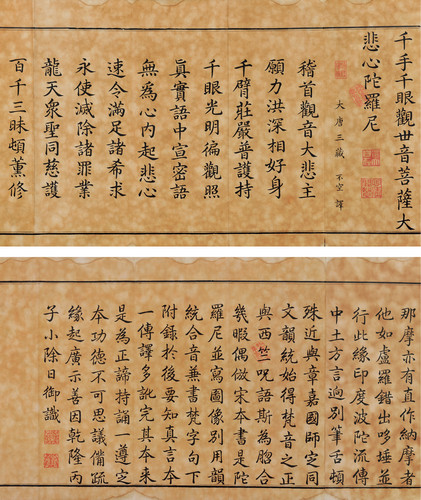 千手千眼觀世音菩薩大
悲心陀羅尼
大唐三藏 不空 譯
稽首觀音大悲主
願力洪深相好身
千臂莊嚴普護持
千眼光明徧觀照
真實語中宣密語
無為心內起悲心
速令滿足諸希求
永使滅除諸罪業
龍天衆聖同慈護
百千三昧頓薰修
那摩亦有直作納摩者
他如盧羅錯出哆埵並
行此緣印度波陀流傳
中土方言迥別筆舌頓
殊近與章嘉國師定同
文韻統始得梵音之正
與西竺呪語斯為脗合
幾暇偶倣宋本書是陀
羅尼並寫圖像別用韻
統合音兼書梵字句下
附錄於後要知真言本
一傳譯多訛完其本来
是為正諦持誦一遵之
本功德不可思議備疏
緣起廣示善因乾隆丙
子小除日御識